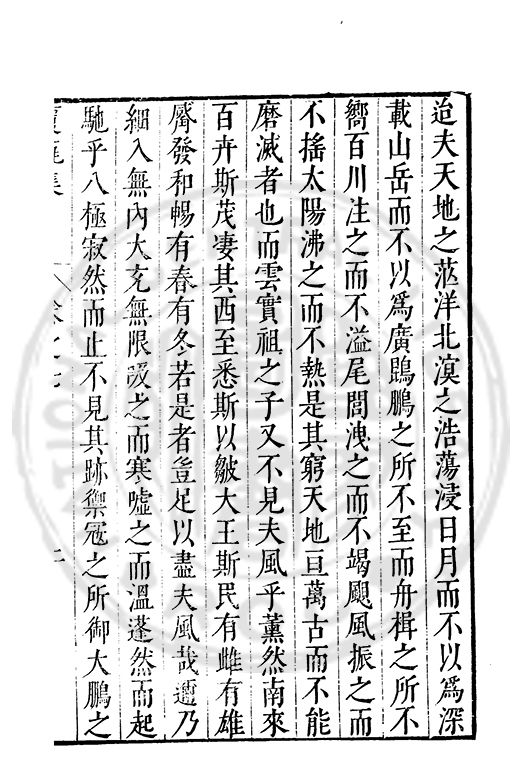 迨夫天地之茫洋北溟之浩蕩浸日月而不以爲深
載山岳而不以爲廣鵾鵬之所不至而舟楫之所不
嚮百川注之而不溢尾閭洩之而不竭颶風振之而
不搖太陽沸之而不熱是其窮天地亘萬古而不能
磨滅者也而雲實祖之子又不見夫風乎薰然南來
百卉斯茂凄其西至悉斯以皺大王斯民有雌有雄
觱發和暢有春有冬若是者豈足以盡夫風哉邇乃
細入無內大充無限噏之而寒噓之而溫蓬然而起
馳乎八極寂然而止不見其跡禦冦之所御大鵬之